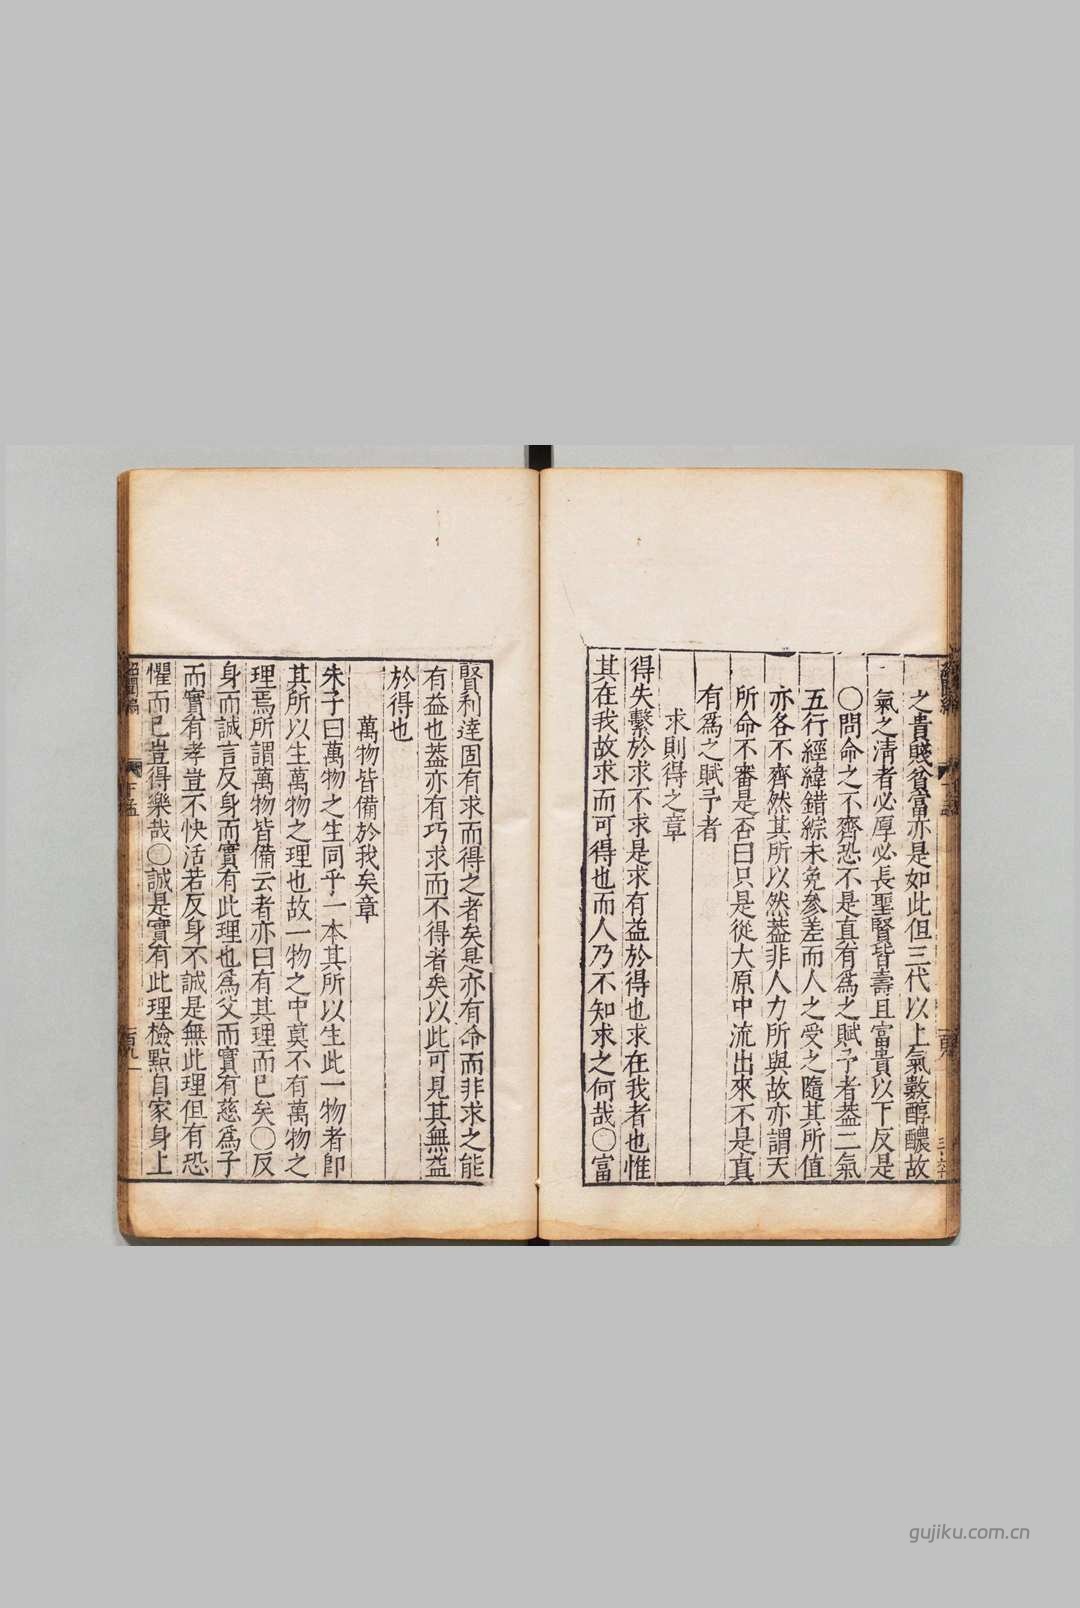 之貴賤貧富亦是如此但三代以上氣數醇醲故
氣之清者必厚必長聖賢皆壽且富貴以下反是
〇問命之不齊恐不是真有爲之賦予者葢二氣
五行經緯錯綜未免參差而人之受之隨其所值
亦各不齊然其所以然葢非人力所與故亦謂天
所命不審是否曰只是從大原中流出來不是真
有爲之賦予者
求則得之章
得失繫於求不求是求有益於得也求在我者也惟
其在我故求而可得也而人乃不知求之何哉〇富
賢利達固有求而得之者矣是亦有命而非求之能
有益也葢亦有巧求而不得者矣以此可見其無益
於得也
萬物皆備於我矣章
朱子曰萬物之生同乎一本其所以生此一物者卽
其所以生萬物之理也故一物之中莫不有萬物之
理焉所謂萬物皆備云者亦曰有其理而已矣〇反
身而誠言反身而實有此理也爲父而實有慈爲子
而實有孝豈不快活若反身不誠是無此理但有恐
懼而已豈得樂哉〇誠是實有此理檢點自家身上
gujiku.com.cn